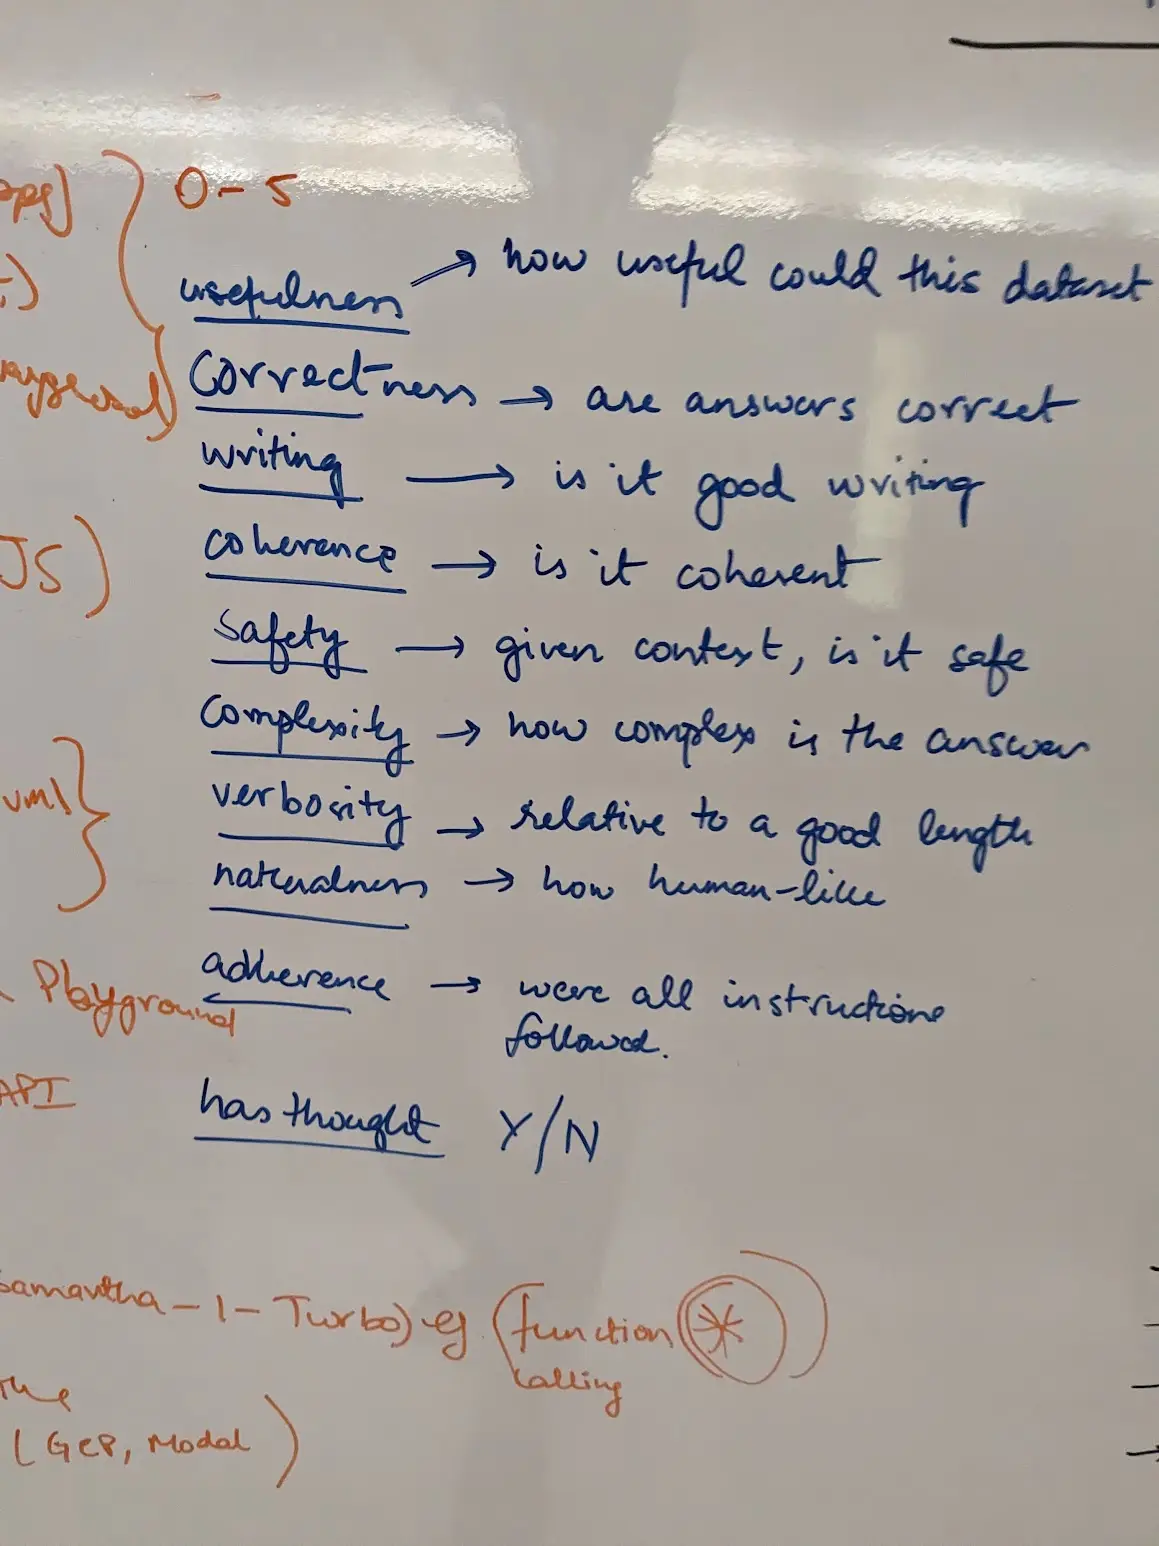 0-5
usefulness → how useful could this dataset
correctness → are answers correct
writing → is it good writing
coherence → is it coherent
JS)
safety → given context, is it safe
complexity → how complex is the answer
verbosity → relative to a good length
naturalness → how human-like
adherence → were all instructions
followed.
Playground
API
has thought Y/N
Samantha-1-Turbo) eg (function
calling
(GCP, Modal)